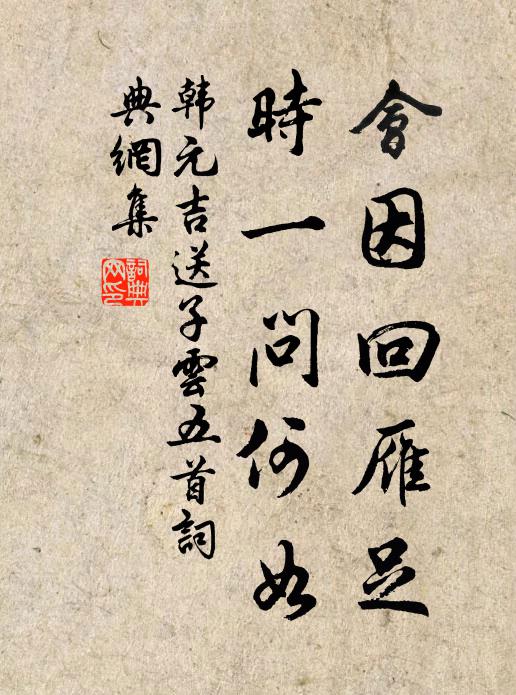 會因回雁足
時一問何如
韓元吉送子雲五首詞
典網集
詞典
网印